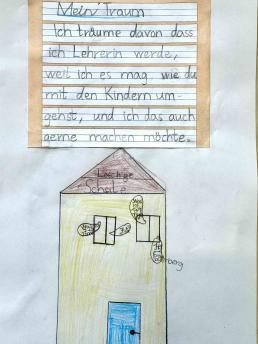 Mein Traum
Ich träume davon dass
ich Lehrerin werde,
weil ich es mag wie du
mit den Kindern um-
gehst, und ich das auch
gerne machen möchte.